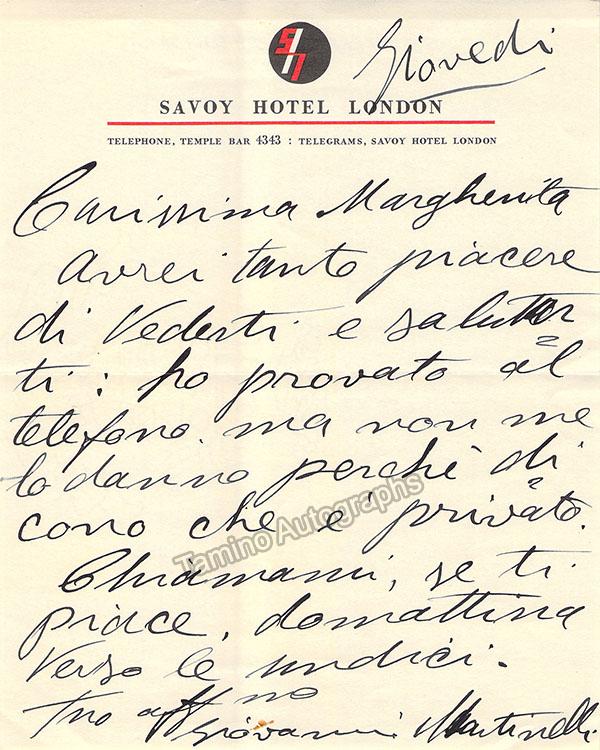 Giovedì
SAVOY HOTEL LONDON
TELEPHONE, TEMPLE BAR 4343 : TELEGRAMS, SAVOY HOTEL LONDON
Carissima Margherita
Avrei tanto piacere
di Vederti e salutar
ti: ho provato al
telefono. ma non me
lo danno perchè di
cono che e' privato.
Tamino Autographs
Chiamami, se ti
piace, domattina
Verso le undici.
Tuo aff mo
Giovanni Martinelli